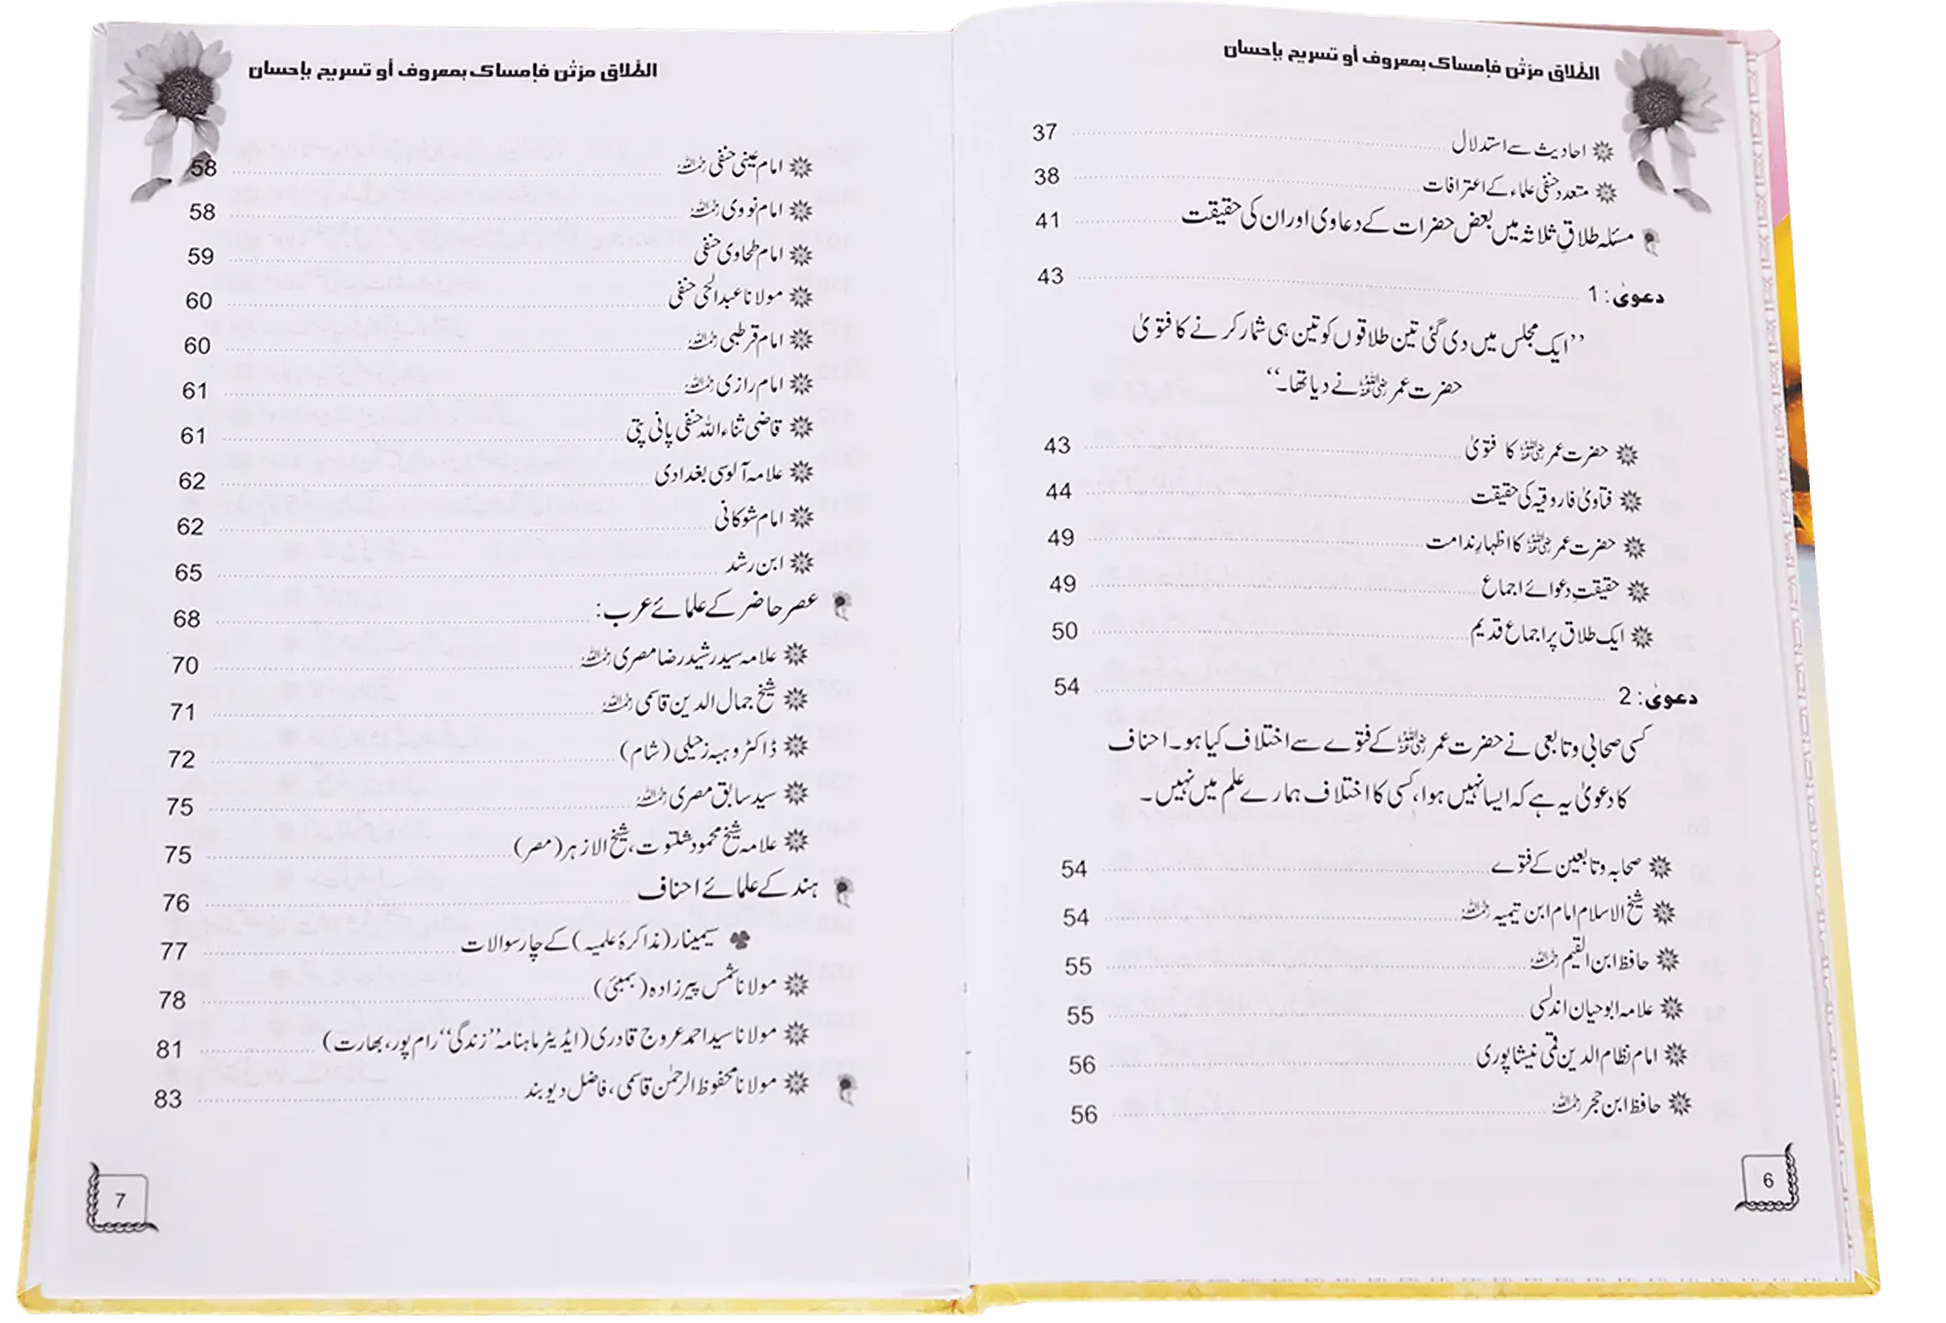 الطلاق مرتٰن فإمساک بمعروف أو تسریح بإحسان
احادیث سے استدلال 37
متعدد حنفی علماء کے اعترافات 38
مسئلہ طلاقِ ثلاثہ میں بعض حضرات کے دعاوی اور ان کی حقیقت 41
دعویٰ: 1 43
’’ایک مجلس میں دی گئی تین طلاقوں کو تین ہی شمار کرنے کا فتویٰ
حضرت عمر رضی اللہ عنہ نے دیا تھا۔‘‘
حضرت عمر رضی اللہ عنہ کا فتویٰ 43
فتاویٰ فاروقیہ کی حقیقت 44
حضرت عمر رضی اللہ عنہ کا اظہارِ ندامت 49
حقیقتِ دعوائے اجماع 49
ایک طلاق پر اجماع قدیم 50
دعویٰ: 2 54
کسی صحابی و تابعی نے حضرت عمر رضی اللہ عنہ کے فتوے سے اختلاف کیا ہو۔ احناف
کا دعویٰ یہ ہے کہ ایسا نہیں ہوا، کسی کا اختلاف ہمارے علم میں نہیں۔
صحابہ و تابعین کے فتوے 54
شیخ الاسلام امام ابن تیمیہ رحمہ اللہ 54
حافظ ابن القیم رحمہ اللہ 55
علامہ ابو حیان اندلسی 55
امام نظام الدین قمی نیشاپوری 56
حافظ ابن حجر رحمہ اللہ 56
6
الطلاق مرتٰن فإمساک بمعروف أو تسریح بإحسان
امام عینی حنفی رحمہ اللہ 58
امام نووی رحمہ اللہ 58
امام طحاوی حنفی 59
مولانا عبدالحی حنفی 60
امام قرطبی رحمہ اللہ 60
امام رازی رحمہ اللہ 61
قاضی ثناء اللہ حنفی پانی پتی 61
علامہ آلوسی بغدادی 62
امام شوکانی 62
ابن رشد 65
عصر حاضر کے علمائے عرب: 68
علامہ سید رشید رضا مصری رحمہ اللہ 70
شیخ جمال الدین قاسمی رحمہ اللہ 71
ڈاکٹر وہبہ زحیلی (شام) 72
سید سابق مصری رحمہ اللہ 75
علامہ شیخ محمود شلتوت، شیخ الازہر (مصر) 75
ہند کے علمائے احناف 76
سیمینار (مذاکرۂ علمیہ) کے چار سوالات 77
مولانا شمس پیرزادہ (بمبئی) 78
مولانا سید احمد عروج قادری (ایڈیٹر ماہنامہ ’’زندگی‘‘ رام پور، بھارت) 81
مولانا محفوظ الرحمٰن قاسمی، فاضل دیوبند 83
7